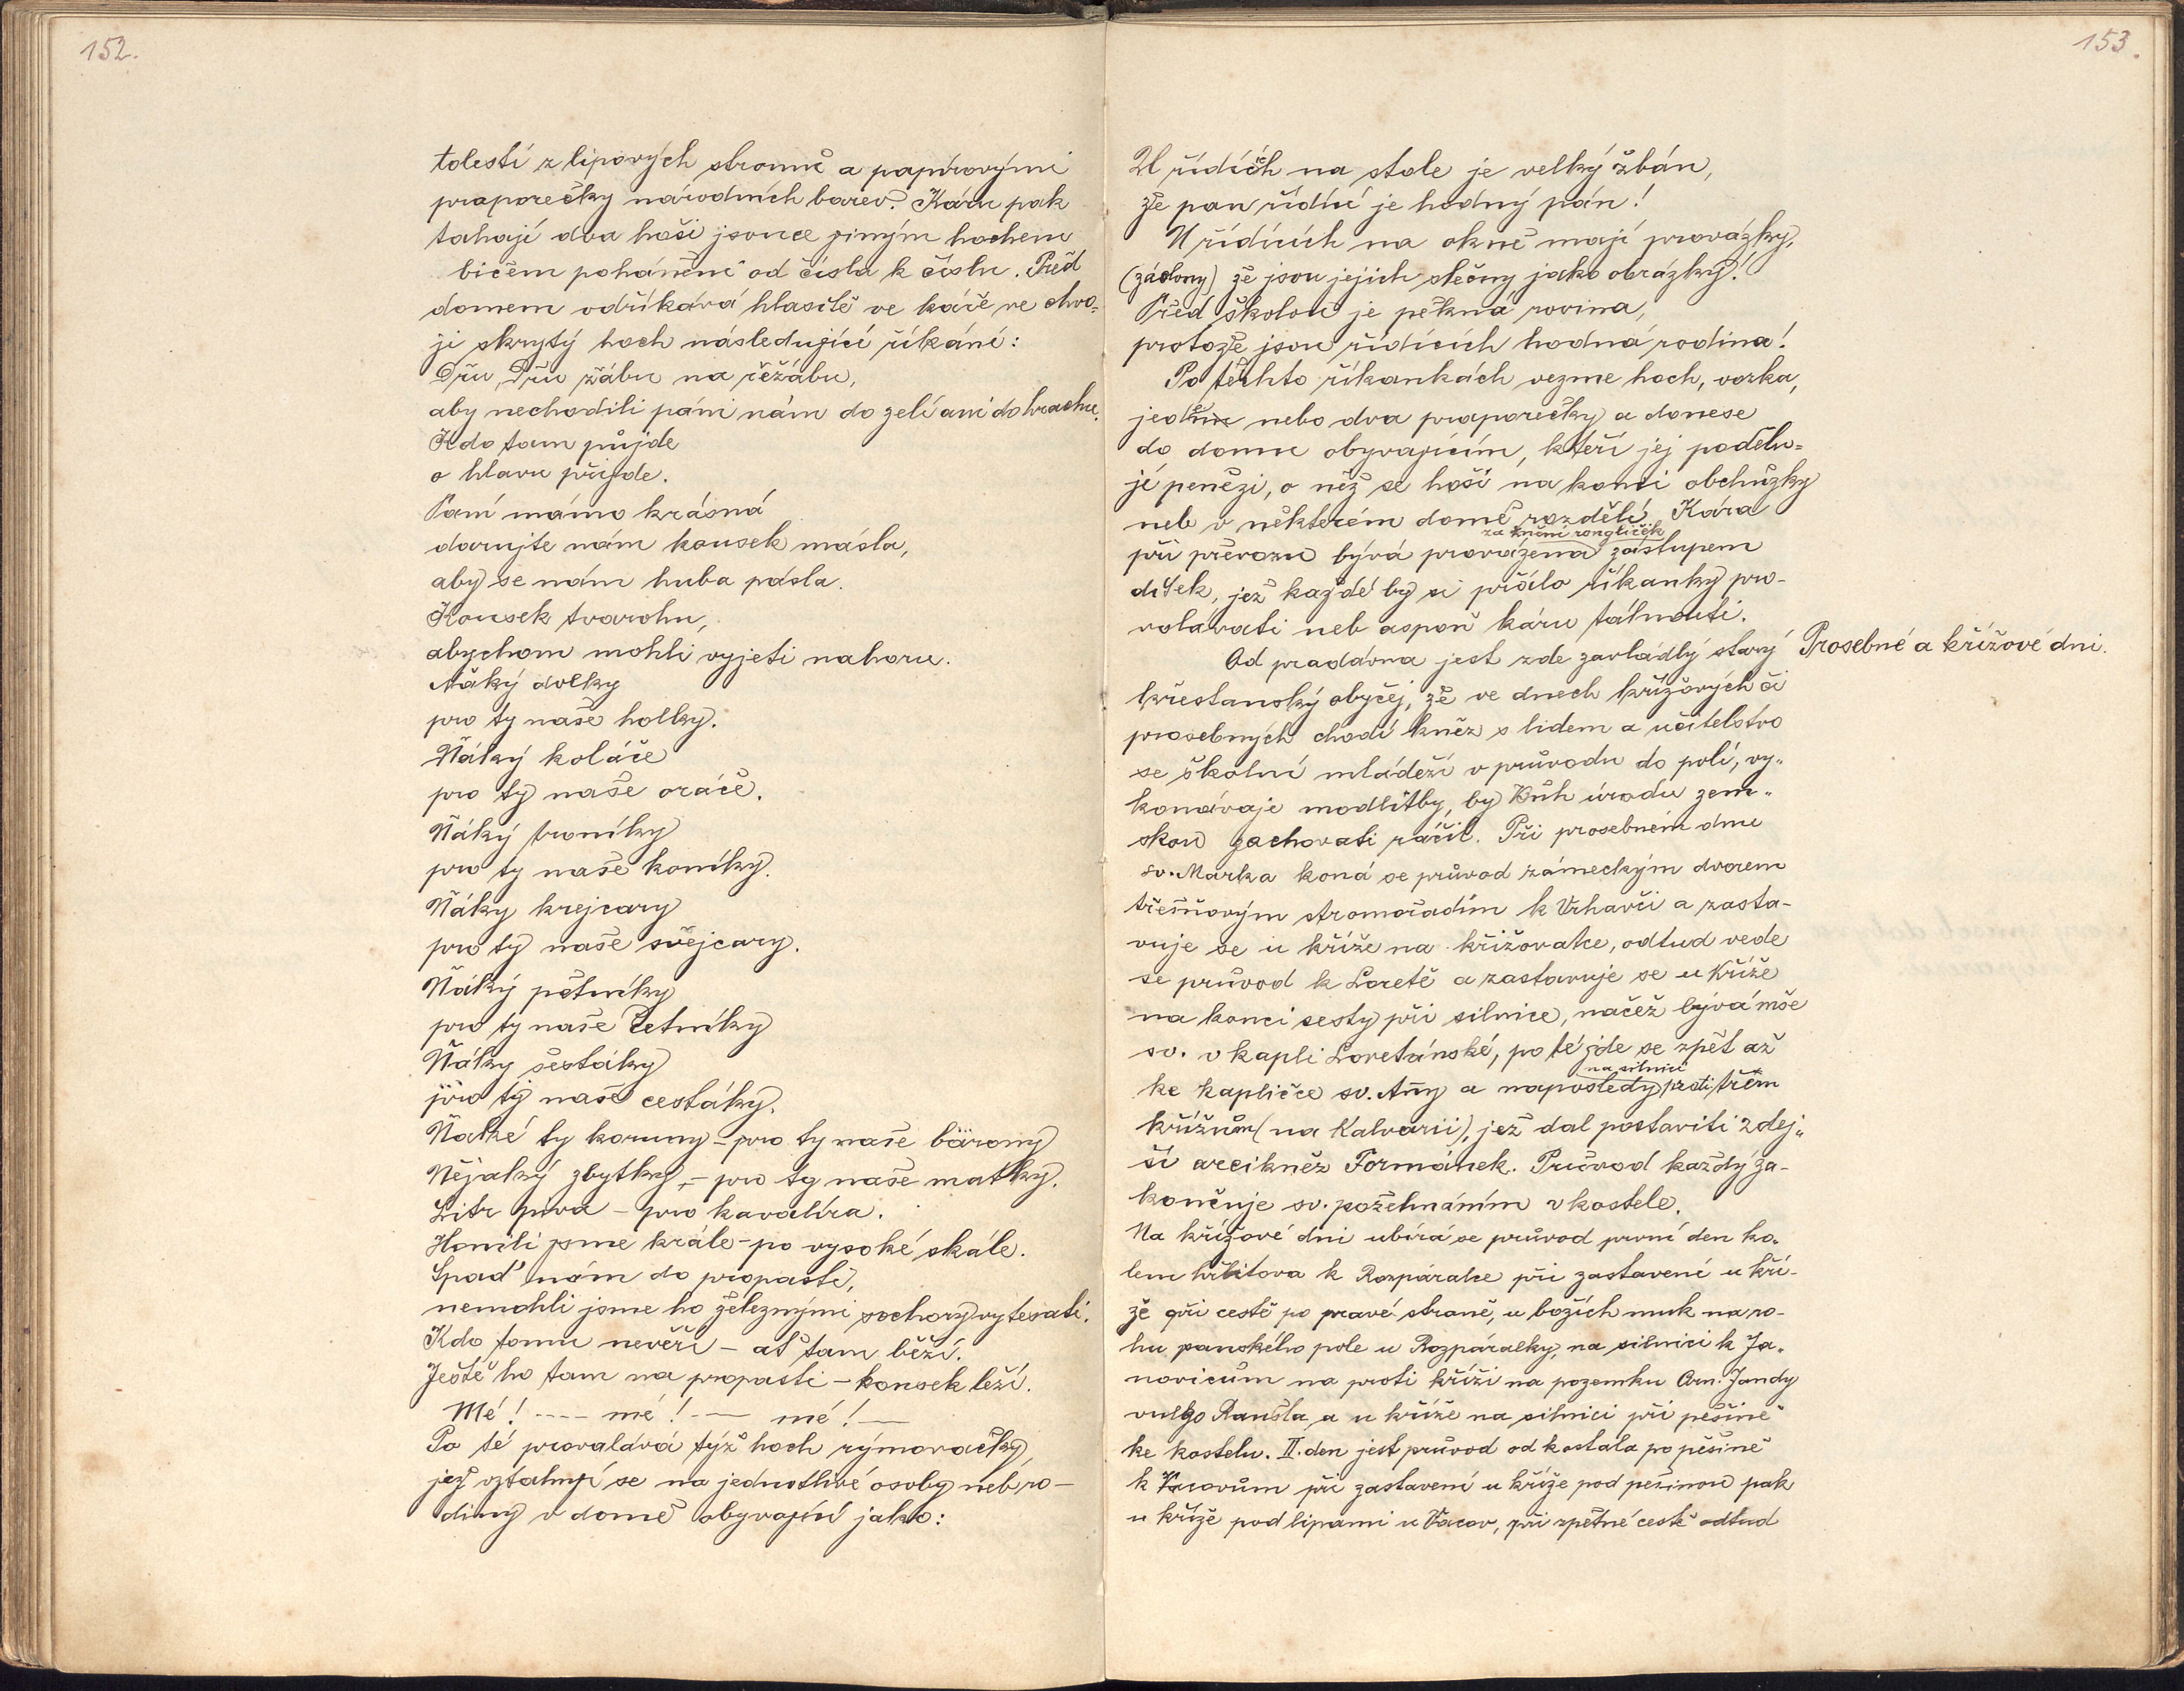 152.
tolestí z lipových stromů a papírovými
praporečky národních barev. Káru pak
tahají dva hoši jsouce jiným hochem
bičem poháněni od čísla k číslu. Před
domem odříkává hlasitě ve káře ve chvo-
ji skrytý hoch následující říkání:
Dřu, Dřu žábu na řežábu,
aby nechodili páni nám do zelí ani do hrachu.
Kdo tam půjde
o hlavu přijde.
Paní mámo krásná
darujte nám kousek másla,
aby se nám huba pásla.
Kousek tvarohu,
abychom mohli vyjeti nahoru.
Ňáký dolky
pro ty naše holky.
Ňáký koláče
pro ty naše oráče.
Ňáký troníky
pro ty naše koníky.
Ňáky krejcary
pro ty naše švejcary.
Ňáký pětníky
pro ty naše četníky
Ňáky šestáky
pro ty naše cesťáky.
Ňaké ty koruny – pro ty naše bárony
Nějaký zbytky, – pro ty naše matky.
Litr piva – pro kavalíra.
Honili jsme krále – po vysoké skále.
Spad' nám do propasti,
nemohli jsme ho železnými sochory vytesati.
Kdo tomu nevěří – ať tam běží.
Ještě ho tam na propasti – kousek leží.
Mé! ---- mé! -- mé! --
Po té provolává týž hoch rýmovačky,
jež vztahují se na jednotlivé osoby neb ro-
diny v domě obývající jako:
153.
U řídících na stole je velký žbán,
že pan řídící je hodný pán!
U řídících na okně mají provázky,
(záclony) že jsou jejich slečny jako obrázky!
Před školou je pěkná rovina,
protože jsou řídících hodná rodina!
Po těchto říkankách vezme hoch, vozka,
jeden nebo dva praporečky a donese
do domu obývajícím, kteří jej poděлu-
jí penězi, o něž se hoši na konci obchůzky
neb v některém domě rozdělí. Kára
za znění rongliček
při převozu bývá provázena zástupem
dítek, jež každé by si přálo říkanky pro-
volávati neb aspoň káru táhnouti.
Od pradávna jest zde zavládlý starý
Prosebné a křížové dni.
křesťanský obyčej, že ve dnech křížových či
prosebných chodí kněz s lidem a učitelstvo
se školní mládeží v průvodu do polí, vy-
konávaje modlitby, by Bůh úrodu zem-
skou zachovati ráčil. Při prosebném dnu
sv. Marka koná se průvod zámeckým dvorem
třešňovým stromořadím k Vrhavči a zasta-
vuje se u kříže na křižovatce, odtud vede
se průvod k Loretě a zastavuje se u Kříže
na konci cesty při silnice, načež bývá mše
sv. v kapli Loretánské, po té jde se zpět až
na silnici
ke kapličce sv. Anny a naposledy proti třem
křížům (na Kalvarii), jež dal postaviti zdej-
ší arcikněz Formánek. Průvod každý za-
končuje sv. požehnáním v kostele.
Na křížové dni ubírá se průvod první den ko-
lem hřbitova k Rozpáralce při zastavení u kří-
že při cestě po pravé straně, u božích muk na ro-
hu panského pole u Rozpáralky, na silnici k Ja-
novicům na proti kříži na pozemku Arn. Jandy
vulgo Raušla a u kříže na silnici při pěšině
ke kostelu. II. den jest průvod od kostela po pěšině
k Vacovům při zastavení u kříže pod pěšinou pak
u kříže pod lipami u Vacov, při zpětné cestě odtud